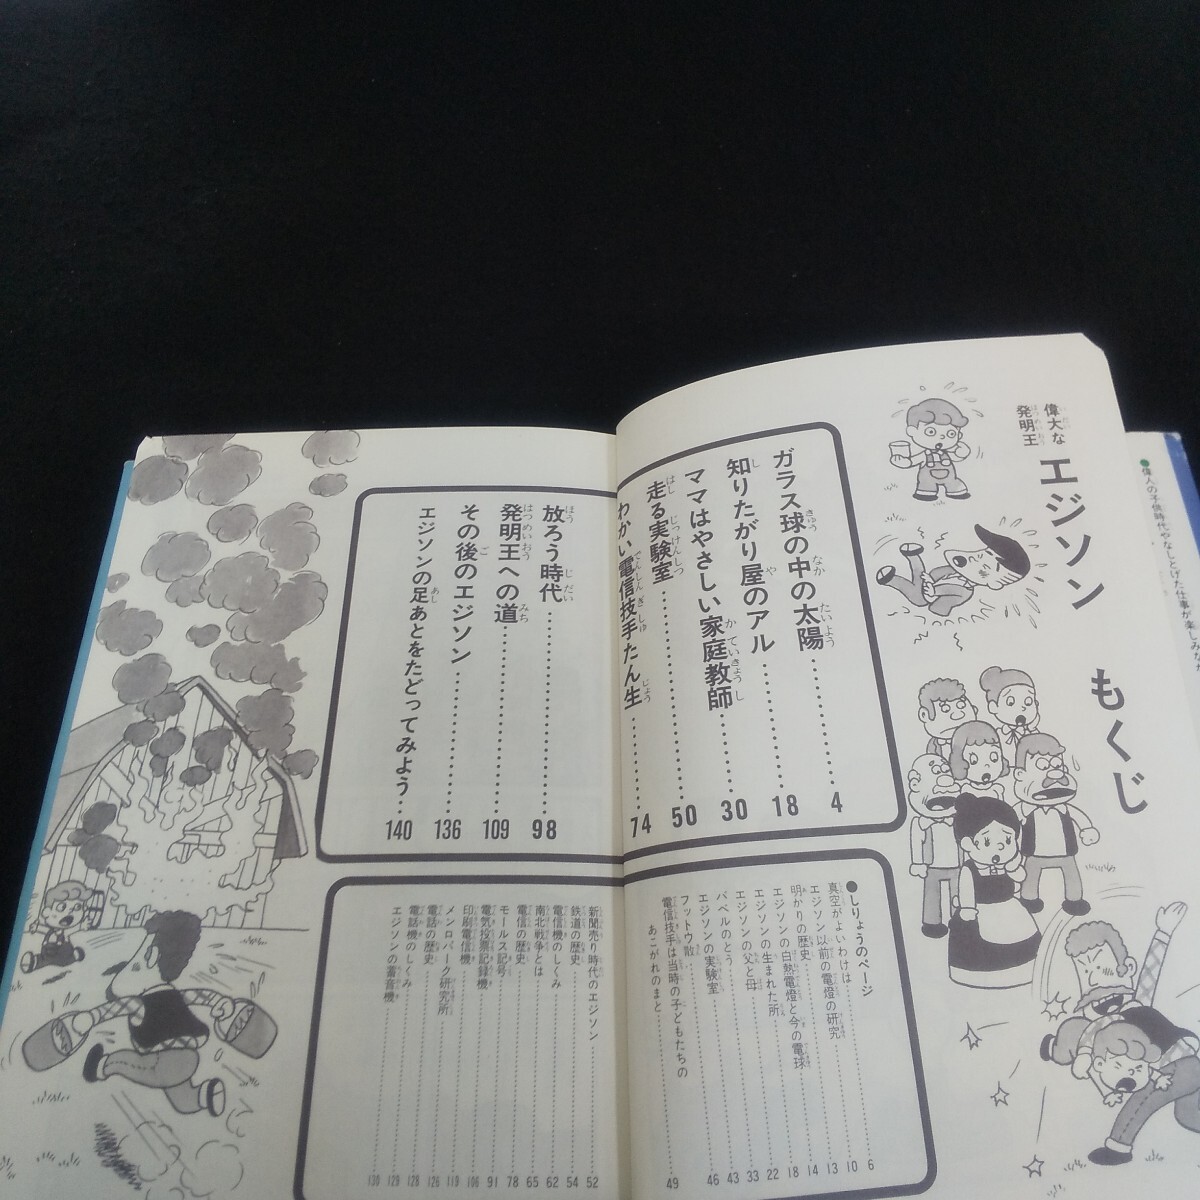 偉大な
発明王
エジソン もくじ
ガラス球の中の太陽 4
知りたがり屋のアル 18
ママはやさしい家庭教師 30
走る実験室 50
わかい電信技手たん生 74
放ろう時代 98
発明王への道 109
その後のエジソン 136
エジソンの足あとをたどってみよう 140
●しりょうのページ
真空がよいわけは 6
エジソン以前の電燈の研究 10
明かりの歴史 13
エジソンの白熱電燈と今の電球 14
エジソンの生まれた所 18
エジソンの父と母 22
バベルのとう 33
エジソンの実験室 43
フットウ散 46
電信技手は当時の子どもたちの
あこがれのまと 49
新聞売り時代のエジソン 52
鉄道の歴史 54
電信機のしくみ 62
南北戦争とは 65
電信の歴史 78
モールス記号 91
電気投票記録機 106
印刷電信機 119
メンロパーク研究所 126
電話の歴史 128
電話機のしくみ 129
エジソンの蓄音機 130
●偉人の子供時代やなしとげた仕事が楽しみな